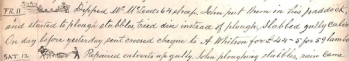 FR 11 Dipped Mr McLeod's 64 sheep. John put them in his paddock,
and started to plough stubble, tried disc instead of plough, Slashed gully calves
On day before yesterday sent crossed cheque to A Whitson for £44-5 for 59 lambs
SAT 12 Repaired culverts up gully. John ploughing stubble, rain came